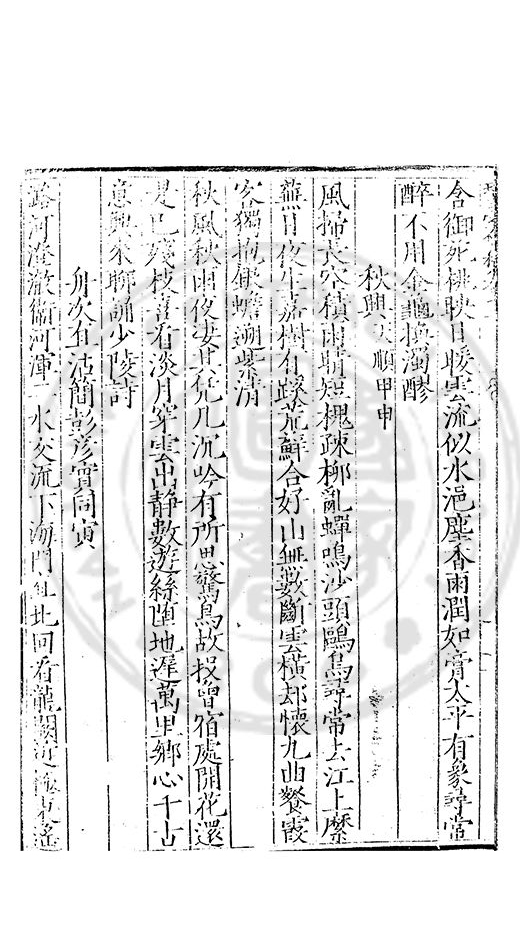 含御苑桃映日暖雲流似水浥塵香雨潤如膏太平有象尋常
醉不用金龜換濁醪
秋興天順甲申
風掃長空積雨晴短槐疎柳亂蟬鳴沙頭鷗鳥尋常去江上縻
蕪月夜生嘉樹有蹊荒蘚合好山無數斷雲橫却懷九曲餐霞
客獨抱銀蟾遡紫清
秋風秋雨夜凄其凭几沉吟有所思驚鳥故投曾宿處開花還
是已殘枝喜看淡月穿雲出静數遊絲墮地遲萬里鄉心千古
意興來聊誦少陵詩
舟次直沽簡彭彦實同寅
潞河澄澈衞河渾二水交流下海門 北回看龍闕近 遙